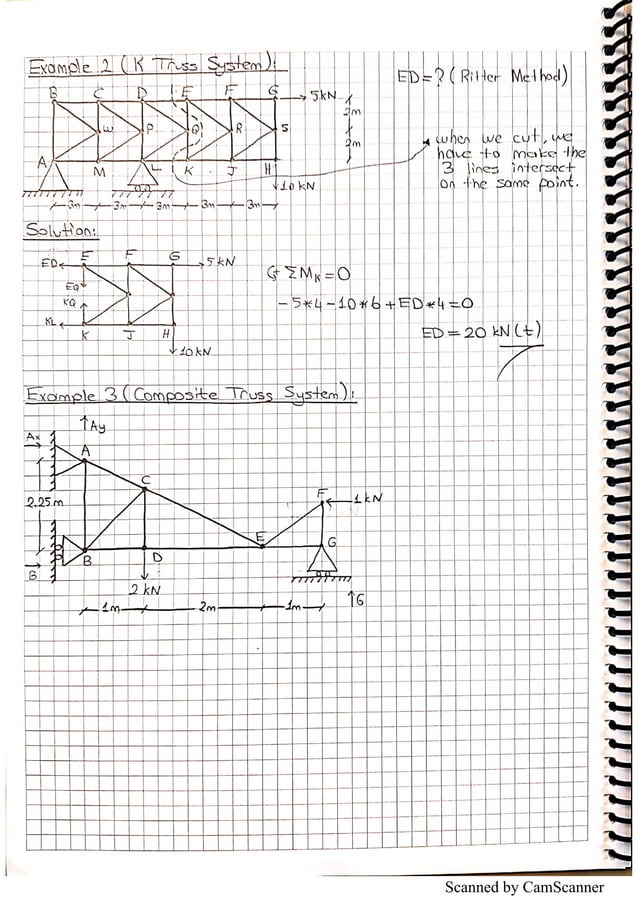 Example 2 (K Truss System):
ED=? (Ritter Method)
B C D E F G
5kN
2m
2m
W P Q R S
A M L K J H
10 kN
3m 3m 3m 3m 3m
when we cut, we
have to make the
3 lines intersect
on the same point.
Solution:
ED E F G 5kN
EQ
KQ
KL K J H
10kN
ΣMK=0
-5*4-10*6+ED*4=0
ED=20 kN(t)
Example 3 (Composite Truss System):
Ay
Ax
A
C
2.25m
F 1kN
E
G
B D
B
2 kN
G
1m 2m 1m
Scanned by CamScanner